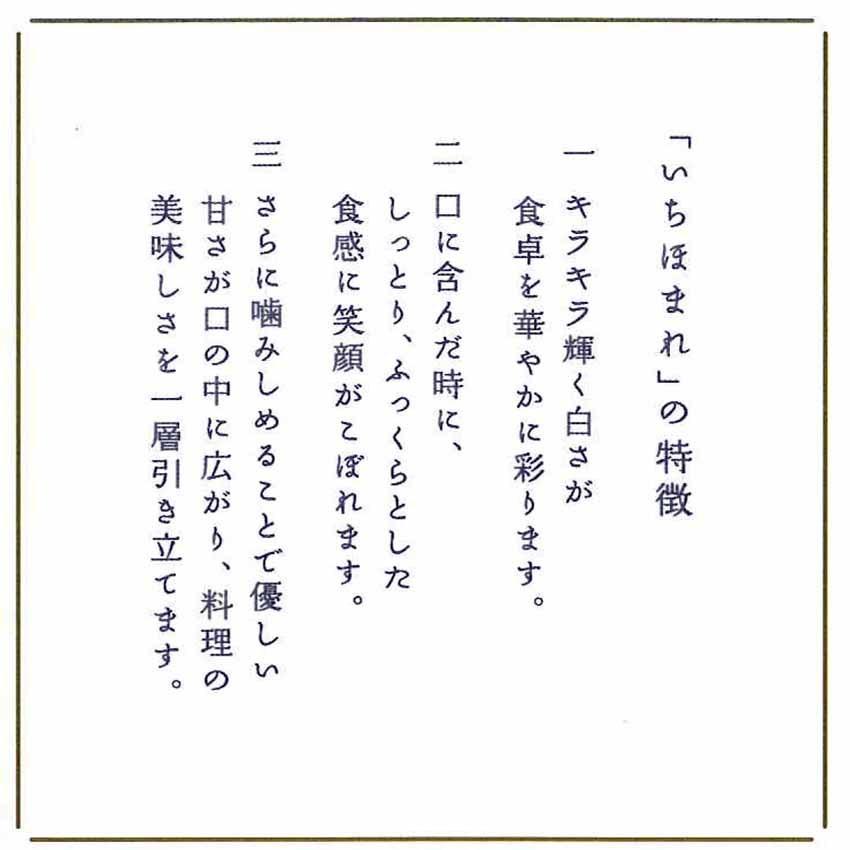 「いちほまれ」の特徴
一 キラキラ輝く白さが
食卓を華やかに彩ります。
二 口に含んだ時に、
しっとり、ふっくらとした
食感に笑顔がこぼれます。
三 さらに噛みしめることで優しい
甘さが口の中に広がり、料理の
美味しさを一層引き立てます。